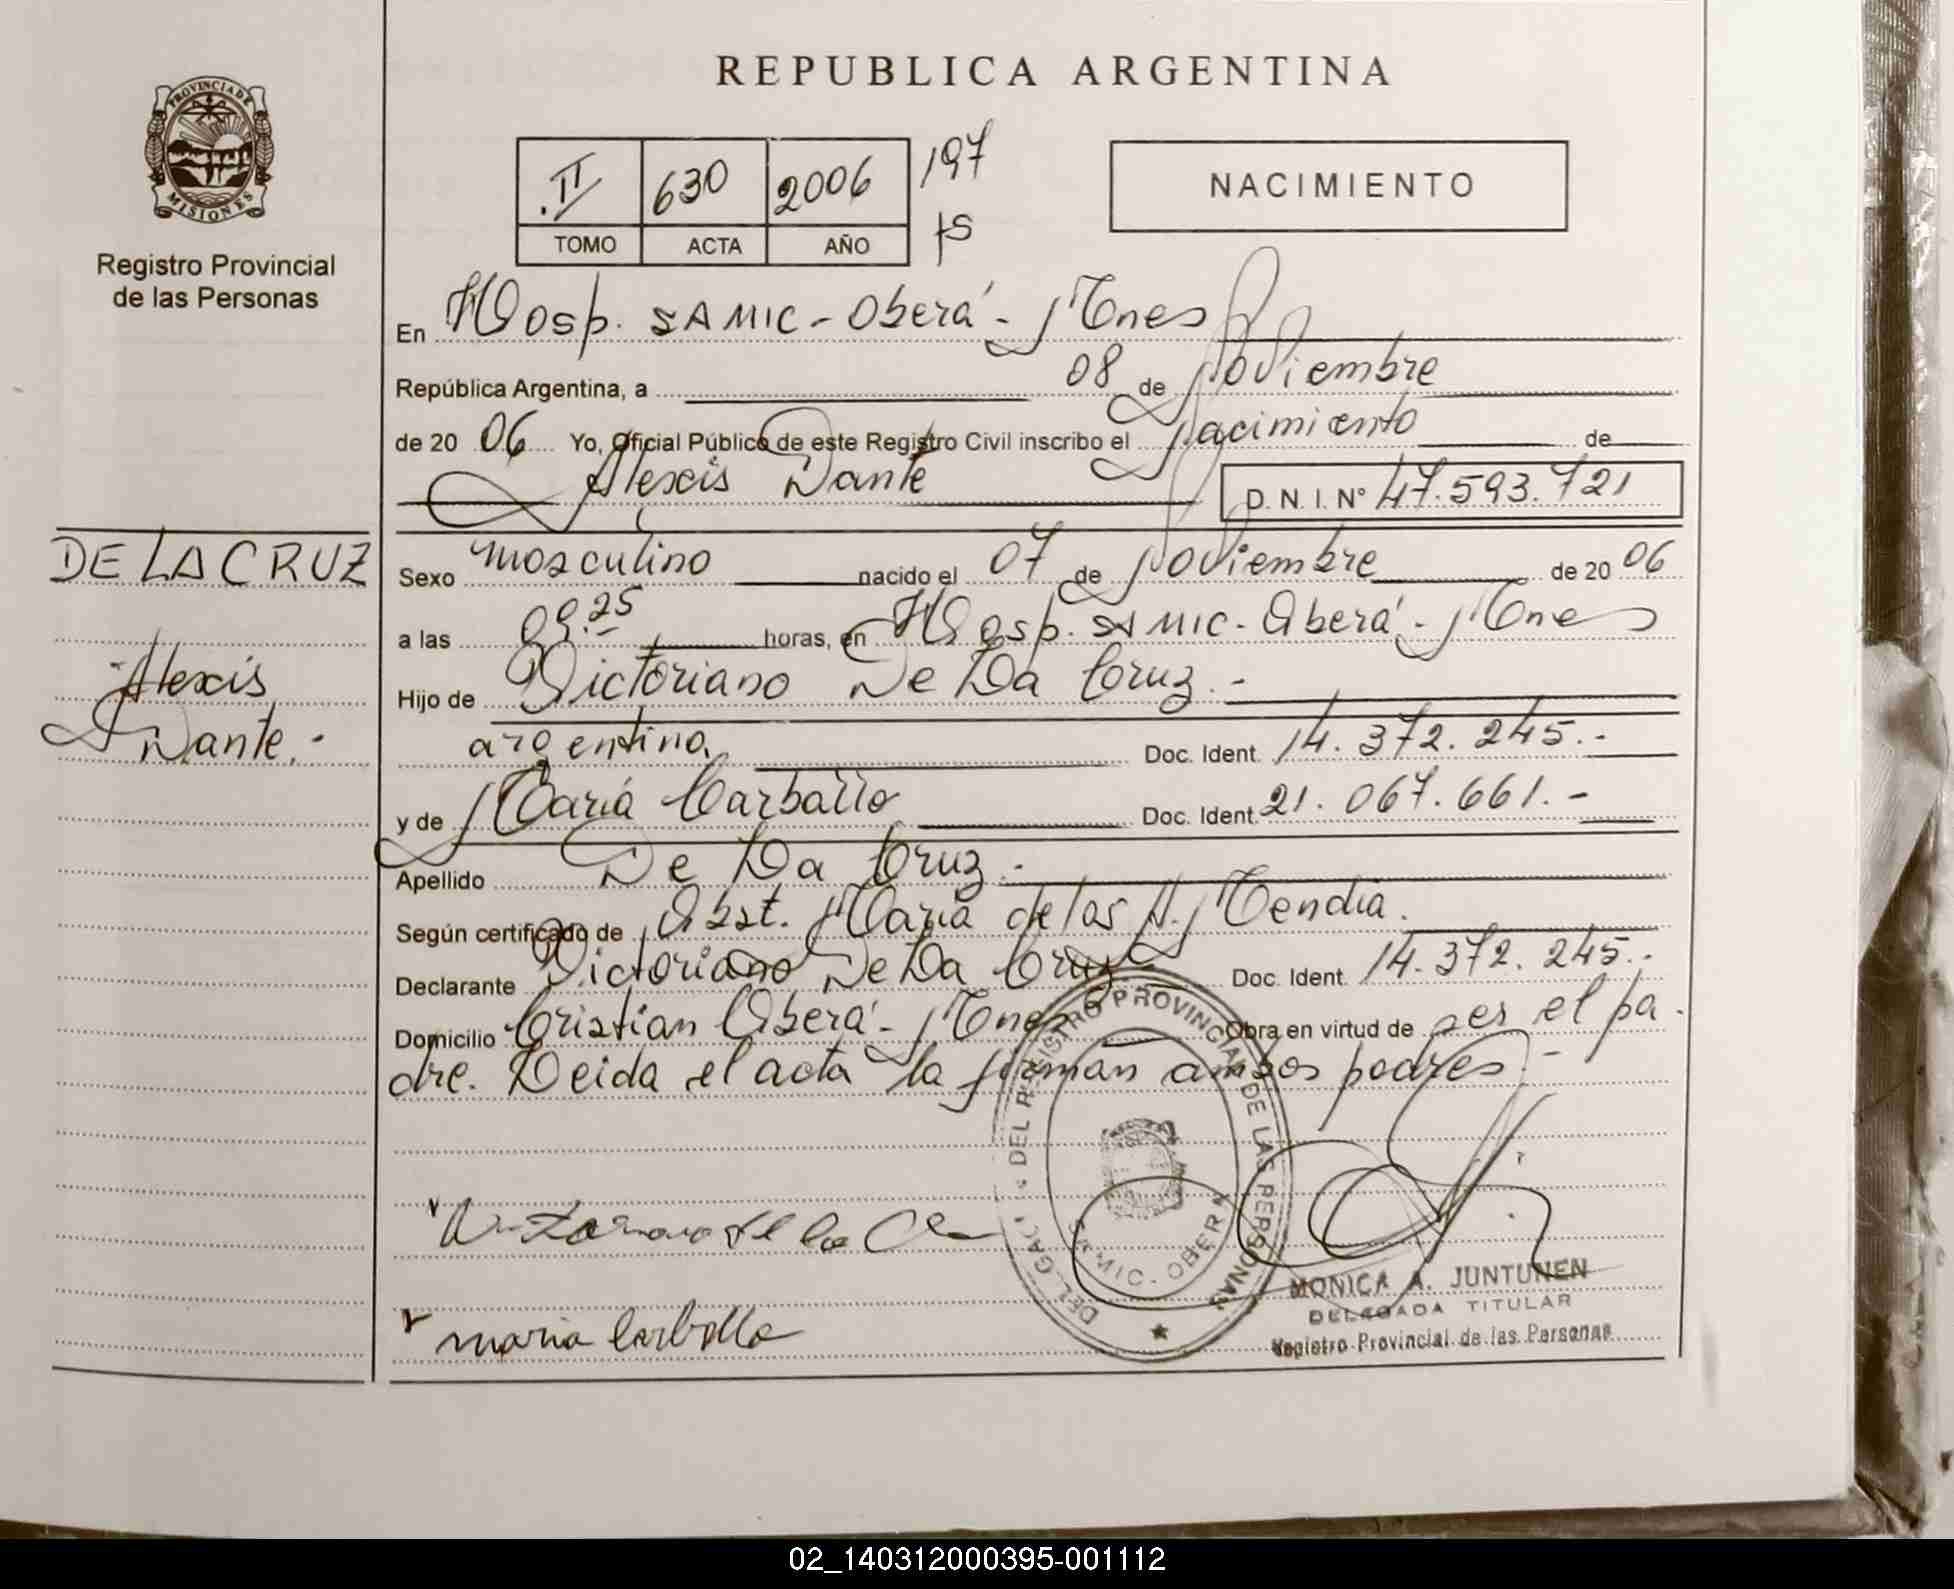 REPUBLICA ARGENTINA
PROVINCIA DE MISIONES
Registro Provincial
de las Personas
II 630 2006 197
TOMO ACTA AÑO fs
NACIMIENTO
En Hosp. SAMIC - Oberá - Mnes
República Argentina, a 08 de Noviembre
de 20 06 Yo, Oficial Público de este Registro Civil inscribo el Nacimiento de
Alexis Dante D. N. I. Nº 47.593.721
DE LA CRUZ
Alexis
Dante.-
Sexo masculino nacido el 07 de Noviembre de 20 06
a las 09.25 horas, en Hosp. SAMIC - Oberá - Mnes
Hijo de Victoriano De La Cruz.-
argentino. Doc. Ident. 14.372.245.-
y de María Carballo Doc. Ident. 21.067.661.-
Apellido De La Cruz.-
Según certificado de Obst. María de los A. Mendia.
Declarante Victoriano De La Cruz Doc. Ident. 14.372.245.-
Domicilio Cristian Oberá - Mnes Obra en virtud de ser el pa-
dre. Leida el acta la firman ambos padres -
DELEGACION DEL REGISTRO PROVINCIAL DE LAS PERSONAS
SAMIC - OBERA
maria Carballo
MONICA A. JUNTUNEN
DELEGADA TITULAR
Registro Provincial de las Personas
02_140312000395-001112